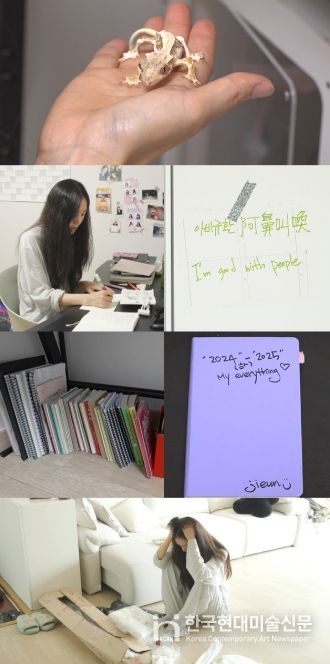 아비규환 阿鼻叫喚
I'm good with people
"2024" "2025"
My everything♡
jieun
한국현대미술신문
Korea Contemporary Art Newspaper